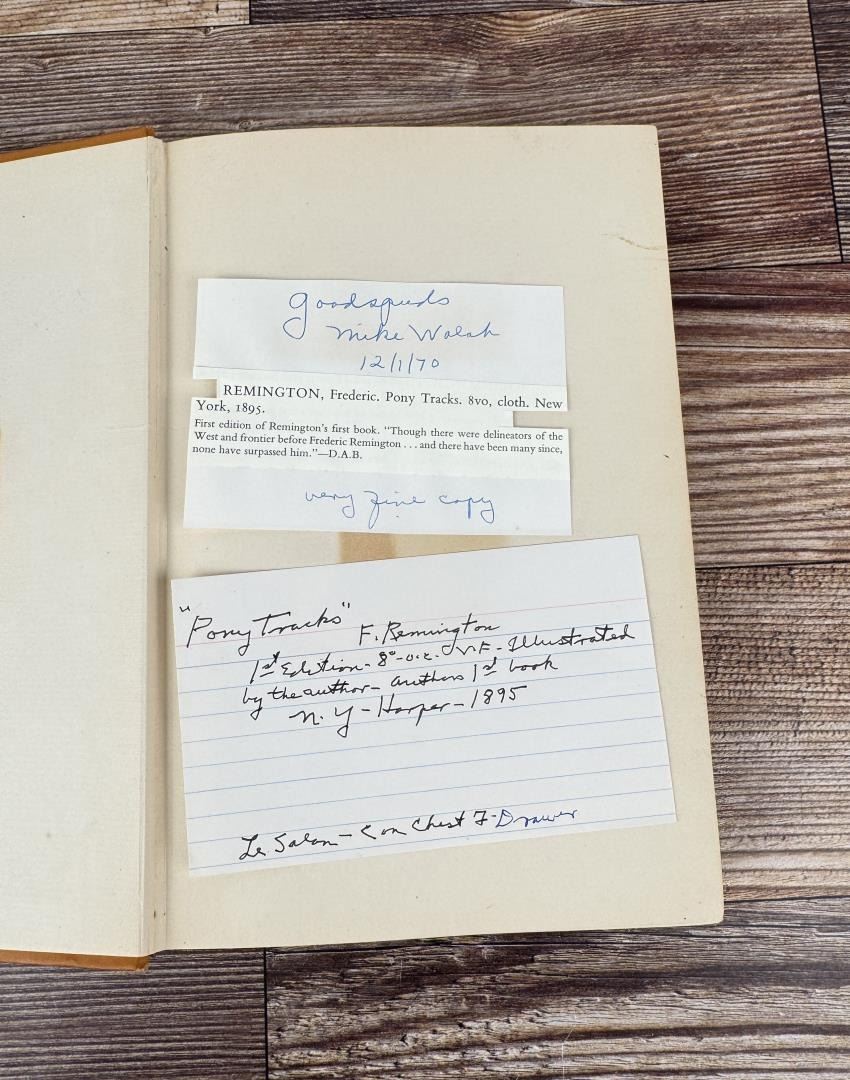 goodspeeds
Mike Walsh
12/1/70
REMINGTON, Frederic. Pony Tracks. 8vo, cloth. New
York, 1895.
First edition of Remington's first book. "Though there were delineators of the
West and frontier before Frederic Remington . . . and there have been many since,
none have surpassed him."—D.A.B.
very fine copy
"Pony Tracks"
F. Remington
1st Edition - 8° - o.c. - V.F. - Illustrated
by the author - authors 1st book
N.Y - Harper - 1895
Le Salon - Chest 7 - Drawer